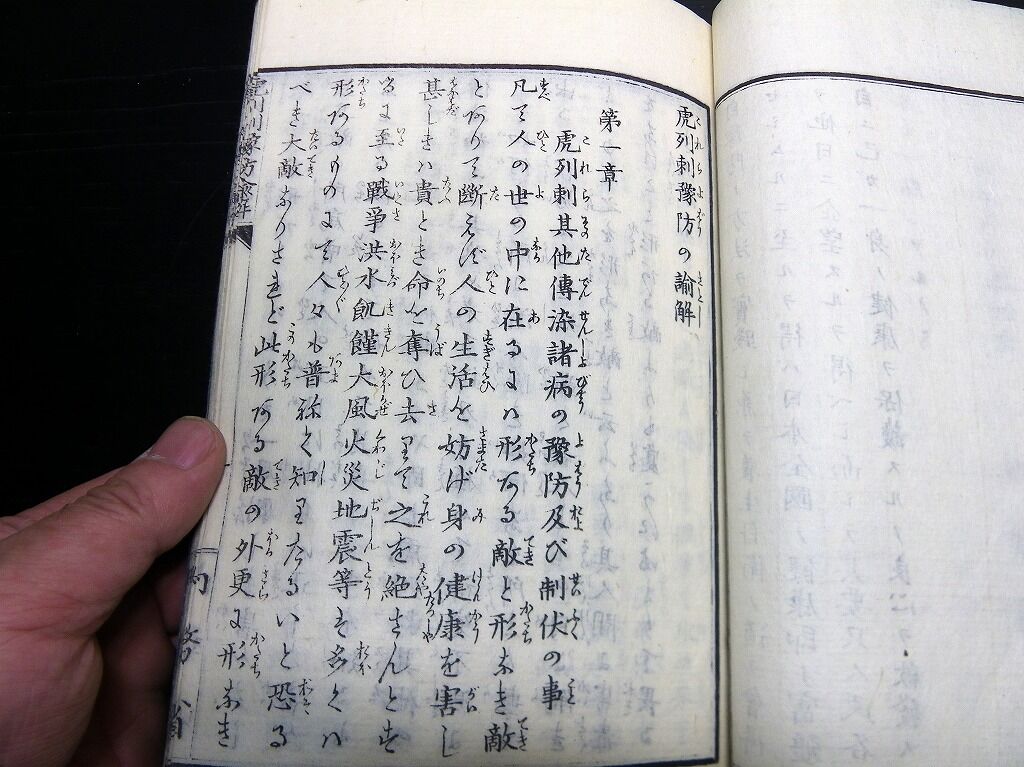 虎列刺豫防の諭解
第一章
虎列刺其他傳染諸病の豫防及び制伏の事
凡そ人の世の中に在るにハ形ある敵と形なき敵
とありて斷えず人の生活を妨げ身の健康を害し
甚しきハ貴とき命を奪ひ去りて之を絶さんとす
るに至る戰爭洪水飢饉大風火災地震等も多くハ
形あるものにて人々も普ねく知りたるいと恐る
べき大敵なりされど此形ある敵の外更に形なき
虎列刺豫防諭解
内務省